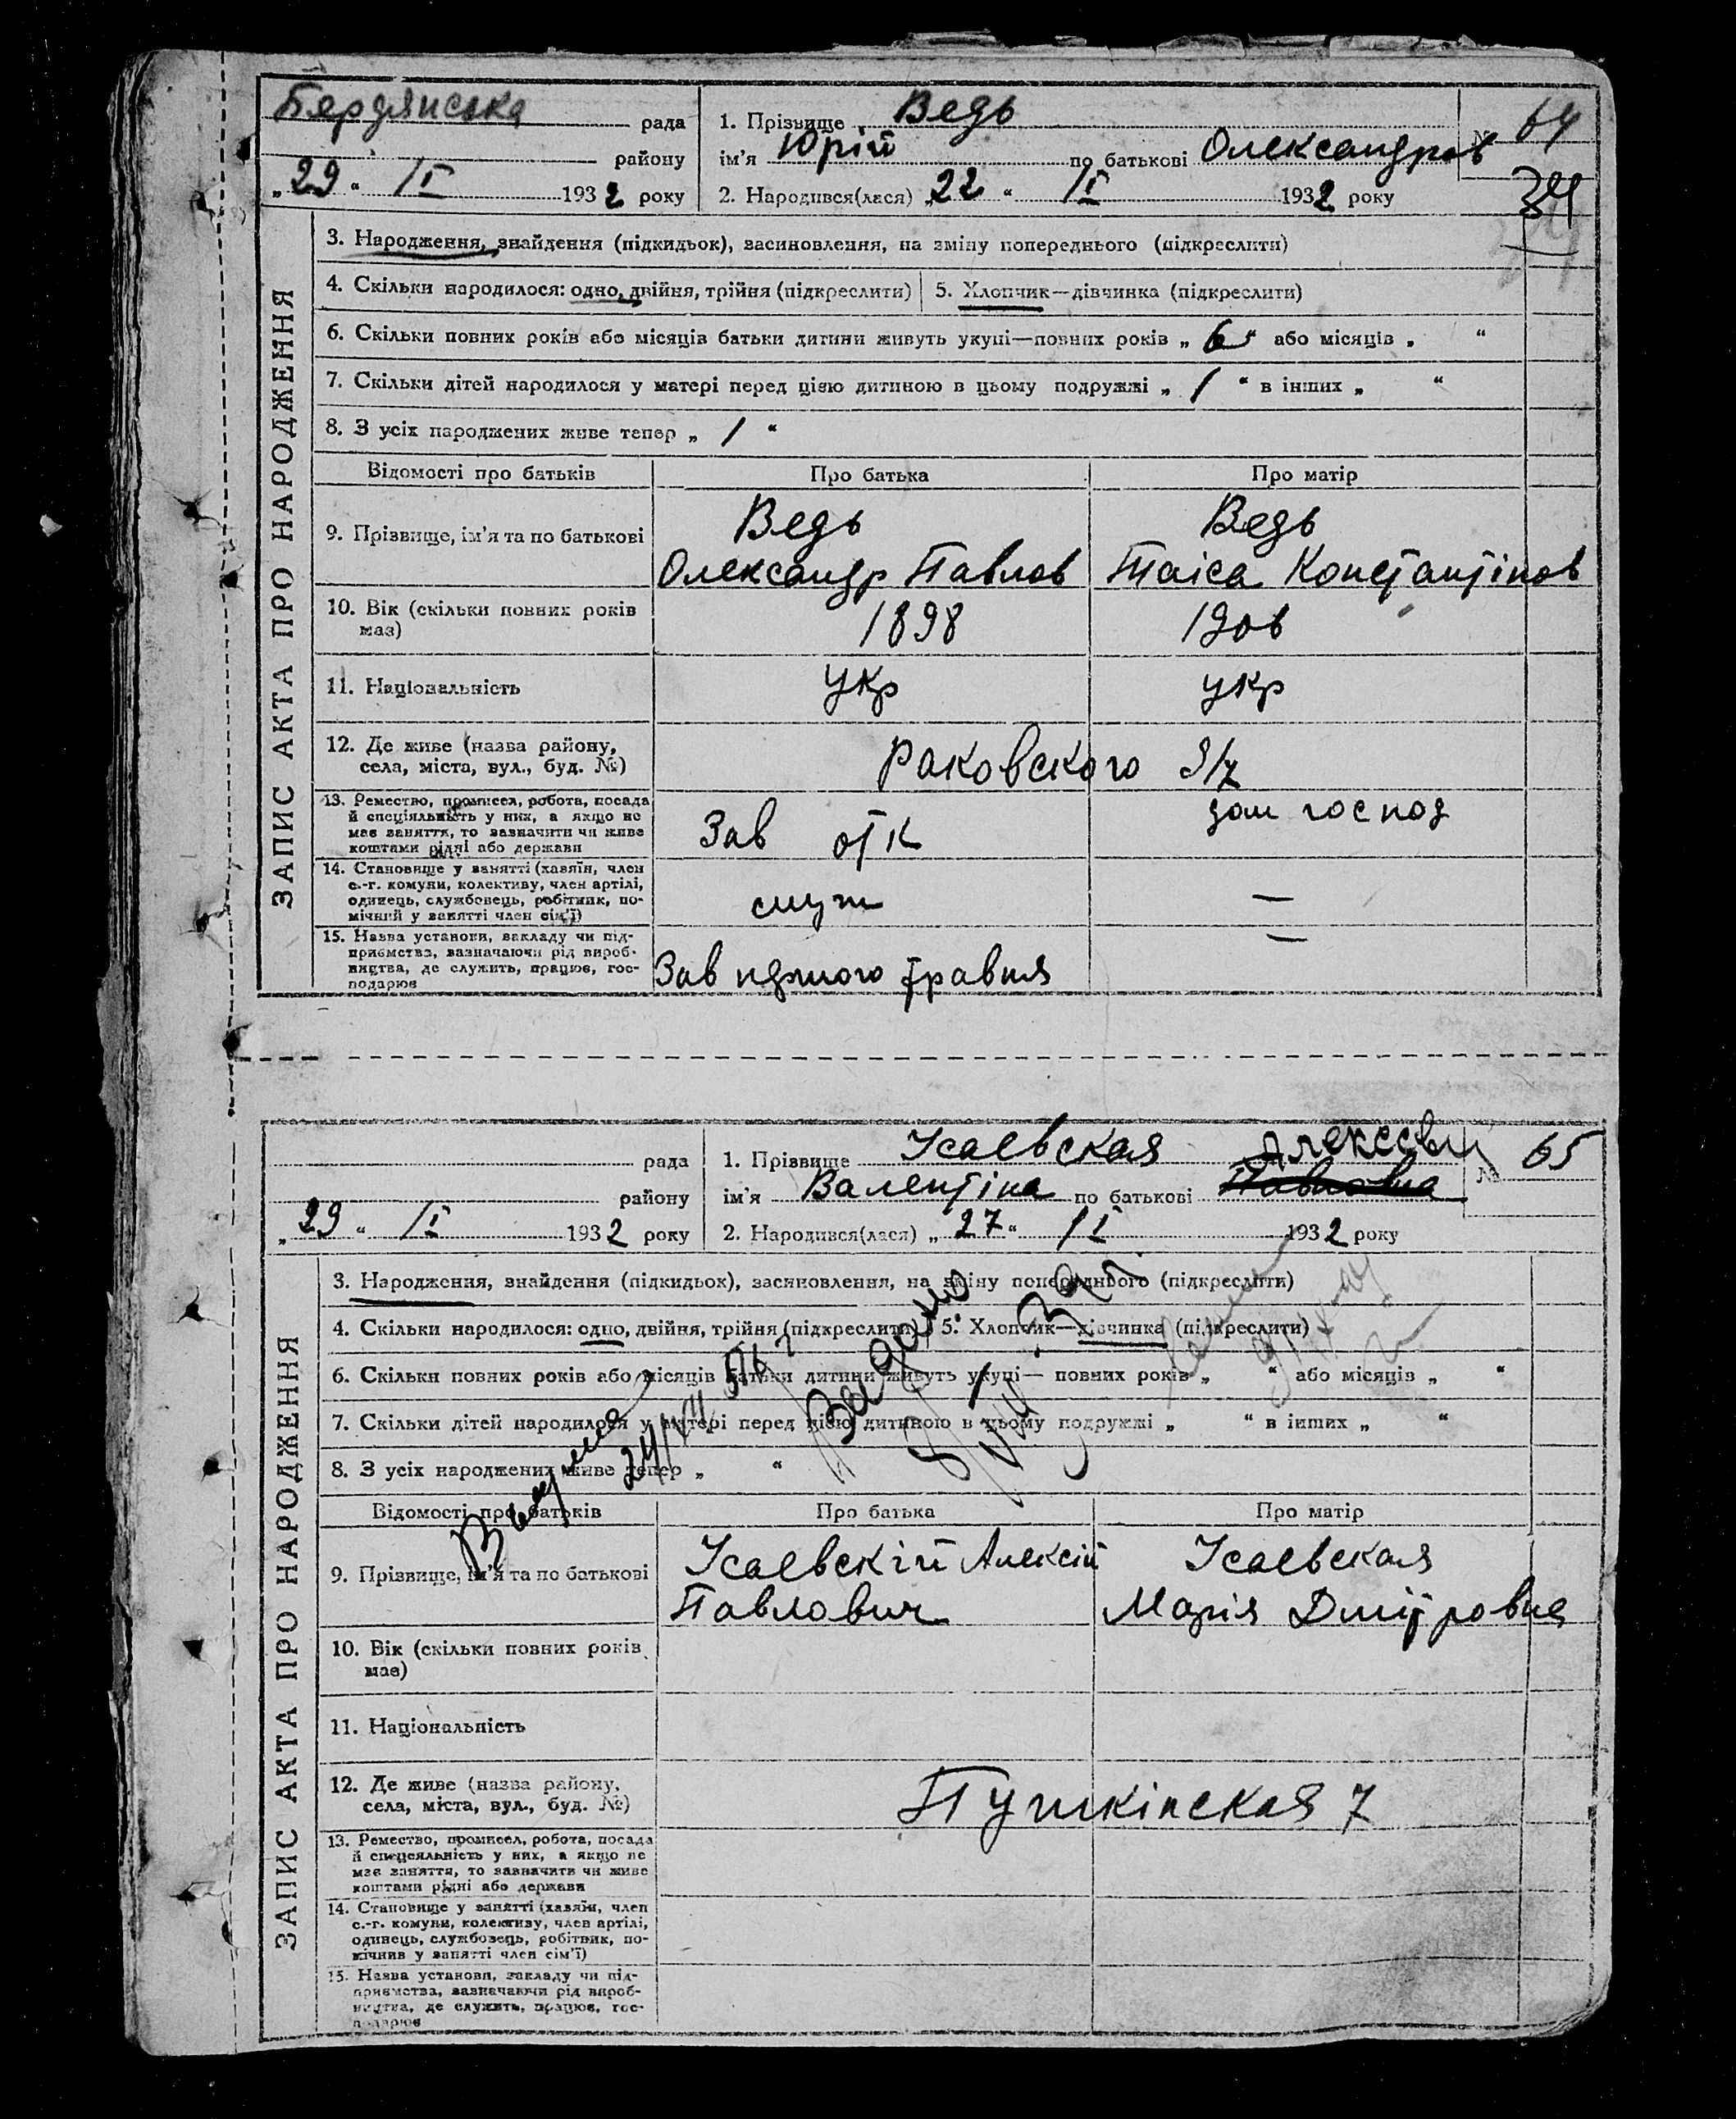 Бердянська рада
району
„29“ /I 1932 року
1. Прізвище Ведь
ім'я Юрій по батькові Олександров
2. Народився(лася) „22“ /I 1932 року
№ 64
34
ЗАПИС АКТА ПРО НАРОДЖЕННЯ
3. Народження, знайдення (підкидьок), засиновлення, на зміну попереднього (підкреслити)
4. Скільки народилося: одно, двійня, трійня (підкреслити) 5. Хлопчик—дівчинка (підкреслити)
6. Скільки повних років або місяців батьки дитини живуть укупі—повних років „6“ або місяців „ “
7. Скільки дітей народилося у матері перед цією дитиною в цьому подружжі „1“ в інших „ “
8. З усіх народжених живе тепер „1“
Відомості про батьків Про батька Про матір
9. Прізвище, ім'я та по батькові
Ведь
Олександр Павлов
Ведь
Таіса Константінов
10. Вік (скільки повних років
має)
1898 1906
11. Національність укр укр
12. Де живе (назва району,
села, міста, вул., буд. №)
Раковского 9/7
13. Ремество, промисел, робота, посада
й спеціяльність у них, а якщо не
має заняття, то зазначити чи живе
коштами рідні або держави
Зав отк
дом господ
14. Становище у занятті (хазяїн, член
с.-г. комуни, колективу, член артілі,
одинець, службовець, робітник, по-
мічний у занятті член сім'ї)
служ —
15. Назва установи, закладу чи під-
приємства, зазначаючи рід вироб-
ництва, де служить, працює, гос-
подарює
Зав першого травня —
рада
району
„29“ /I 1932 року
1. Прізвище Ісаевская Алексеевн
ім'я Валентіна по батькові Павловна
2. Народився(лася) „27“ /I 1932 року
№ 65
ЗАПИС АКТА ПРО НАРОДЖЕННЯ
3. Народження, знайдення (підкидьок), засиновлення, на зміну попереднього (підкреслити)
4. Скільки народилося: одно, двійня, трійня (підкреслити) 5. Хлопчик—дівчинка (підкреслити)
6. Скільки повних років або місяців батьки дитини живуть укупі— повних років „ “ або місяців „ “
7. Скільки дітей народилося у матері перед цією дитиною в цьому подружжі „ “ в інших „ “
8. З усіх народжених живе тепер „ “
Відомості про батьків Про батька Про матір
9. Прізвище, ім'я та по батькові
Ісаевскій Алексій
Павлович
Ісаевская
Марія Дмітровна
10. Вік (скільки повних років
має)
11. Національність
12. Де живе (назва району,
села, міста, вул., буд. №)
Пушкінская 7
13. Ремество, промисел, робота, посада
й спецеяльність у них, а якщо не
має заняття, то зазначити чи живе
коштами рідні або держави
14. Становище у занятті (хазяїн, член
с.-г. комуни, колективу, член артілі,
одинець, службовець, робітник, по-
мічник у занятті член сім'ї)
15. Назва установи, закладу чи під-
приємства, зазначаючи рід вироб-
ництва, де служить, працює, гос-
подарює